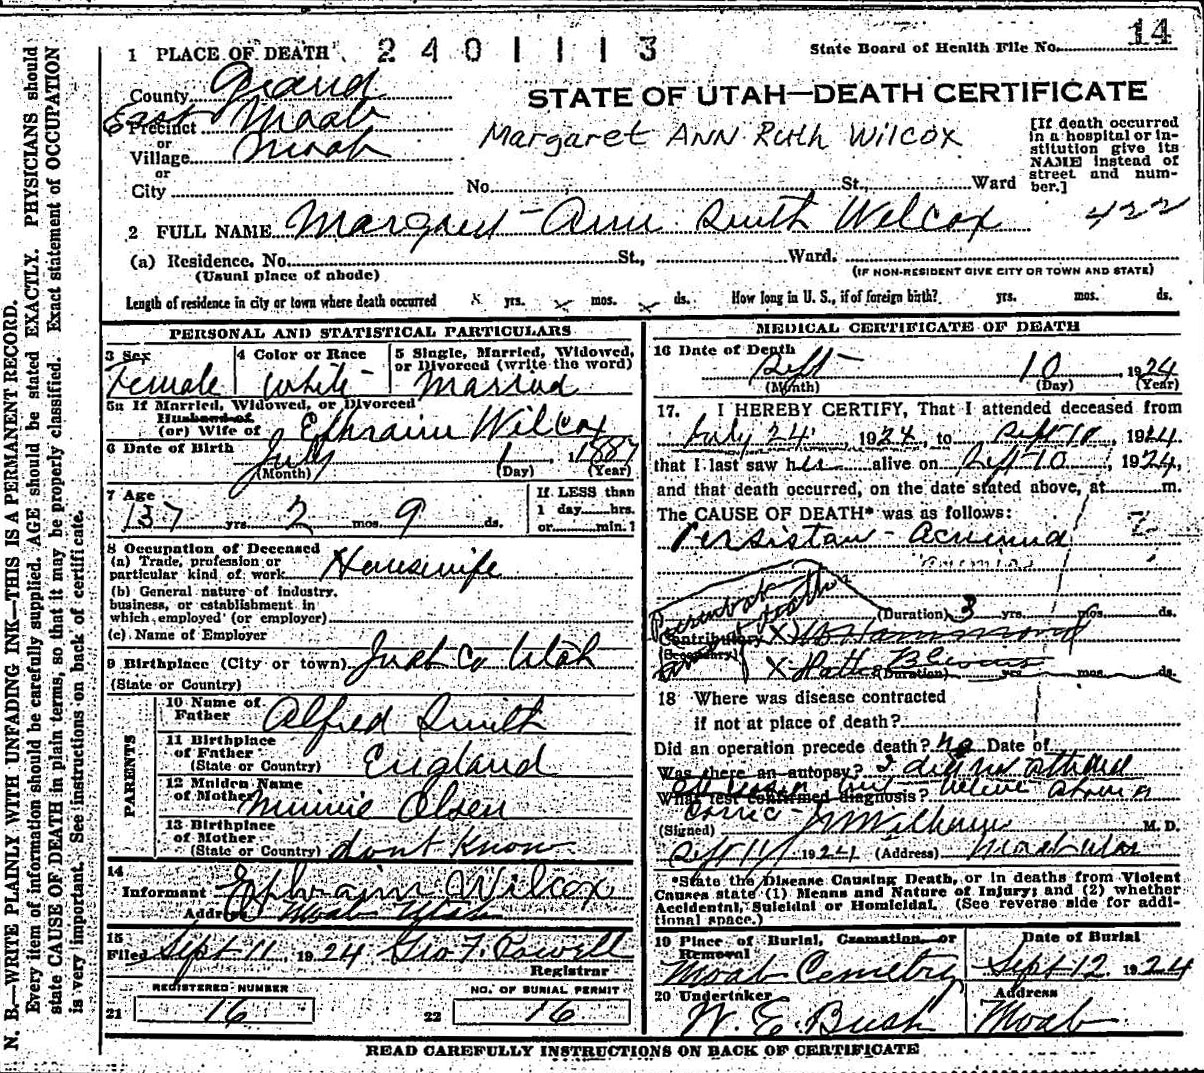 1 PLACE OF DEATH 2401113 State Board of Health File No. 14
County Grand
STATE OF UTAH—DEATH CERTIFICATE
East Precinct Moab
or
Village Moab
or
Margaret ANN Ruth Wilcox
[If death occurred in a hospital or institution give its NAME instead of street and number.]
City No. St., Ward
2 FULL NAME Margaret Ann Ruth Wilcox 422
(a) Residence. No. St., Ward.
(Usual place of abode) (IF NON-RESIDENT GIVE CITY OR TOWN AND STATE)
Length of residence in city or town where death occurred x yrs. x mos. x ds. How long in U. S., if of foreign birth? yrs. mos. ds.
PERSONAL AND STATISTICAL PARTICULARS
3 Sex 4 Color or Race 5 Single, Married, Widowed, or Divorced (write the word)
Female White Married
5a If Married, Widowed, or Divorced
Husband of
(or) Wife of Ephraim Wilcox
6 Date of Birth July 1 1887
(Month) (Day) (Year)
7 Age 37 yrs. 2 mos. 9 ds.
If LESS than
1 day hrs.
or min.?
8 Occupation of Deceased
(a) Trade, profession or
particular kind of work Housewife
(b) General nature of industry,
business, or establishment in
which employed (or employer)
(c) Name of Employer
9 Birthplace (City or town) Juab Co Utah
(State or Country)
PARENTS
10 Name of
Father Alfred Smith
11 Birthplace
of Father England
(State or Country)
12 Maiden Name
of Mother Minnie Olsen
13 Birthplace
of Mother
(State or Country) dont Know
14
Informant Ephraim Wilcox
Address Moab Utah
15
Filed Sept 11, 1924 Geo F. Powell
Registrar
REGISTERED NUMBER NO. OF BURIAL PERMIT
21 16 22 16
MEDICAL CERTIFICATE OF DEATH
16 Date of Death
Sept 10, 1924
(Month) (Day) (Year)
17. I HEREBY CERTIFY, That I attended deceased from
July 24, 1924, to Sept 10, 1924.
that I last saw her alive on Sept 10, 1924,
and that death occurred, on the date stated above, at m.
The CAUSE OF DEATH* was as follows:
(Duration) 3 yrs. mos. ds.
Contributory X Hammond
(Secondary)
X Hattie (Duration) yrs. mos. ds.
18 Where was disease contracted
if not at place of death?
Did an operation precede death? no Date of
Was there an autopsy? I did not attend
What test confirmed diagnosis? believe above is
(Signed) M. D.
Sept 11, 1924 (Address) Moab Utah
*State the Disease Causing Death, or in deaths from Violent
Causes state (1) Means and Nature of Injury; and (2) whether
Accidental, Suicidal or Homicidal. (See reverse side for addi-
tional space.)
19 Place of Burial, Cremation, or Date of Burial
Removal
Moab Cemetry Sept 12, 1924
20 Undertaker Address
W. E. Bush Moab
READ CAREFULLY INSTRUCTIONS ON BACK OF CERTIFICATE
N. B.—WRITE PLAINLY WITH UNFADING INK—THIS IS A PERMANENT RECORD.
Every item of information should be carefully supplied. AGE should be stated EXACTLY. PHYSICIANS should
state CAUSE OF DEATH in plain terms, so that it may be properly classified. Exact statement of OCCUPATION
is very important. See instructions on back of certificate.